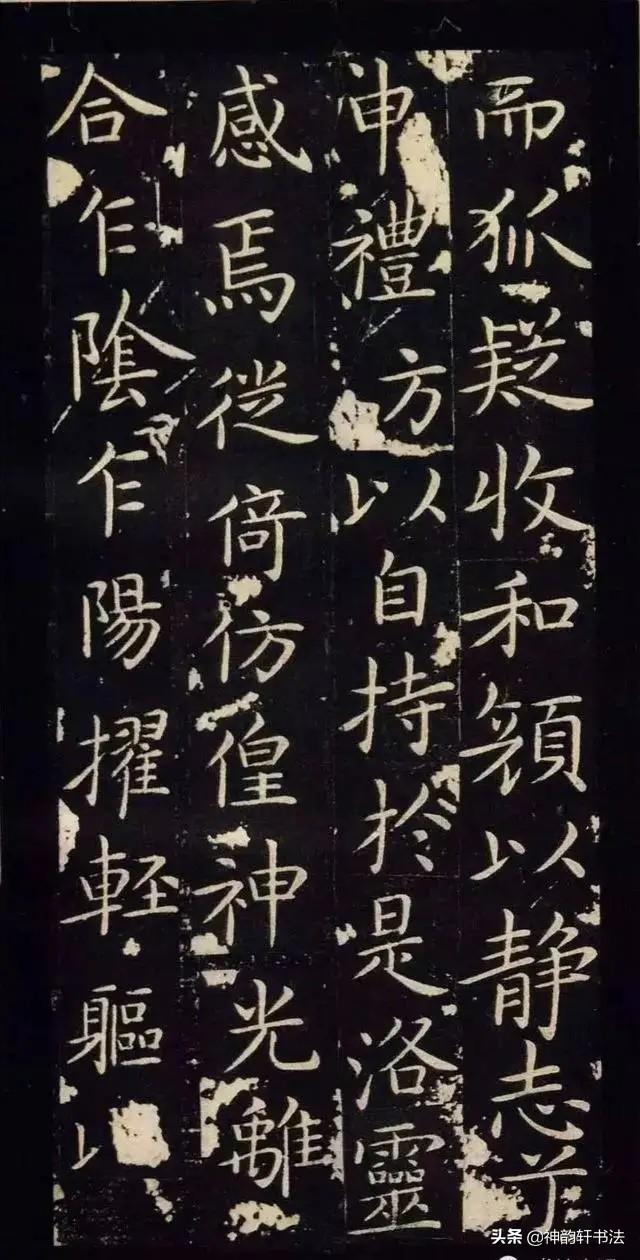 而狐疑收和顔以静志兮
申禮方以自持於是洛靈
感焉徙倚彷徨神光離
合乍陰乍陽擢輕軀以
头条 @神韵轩书法